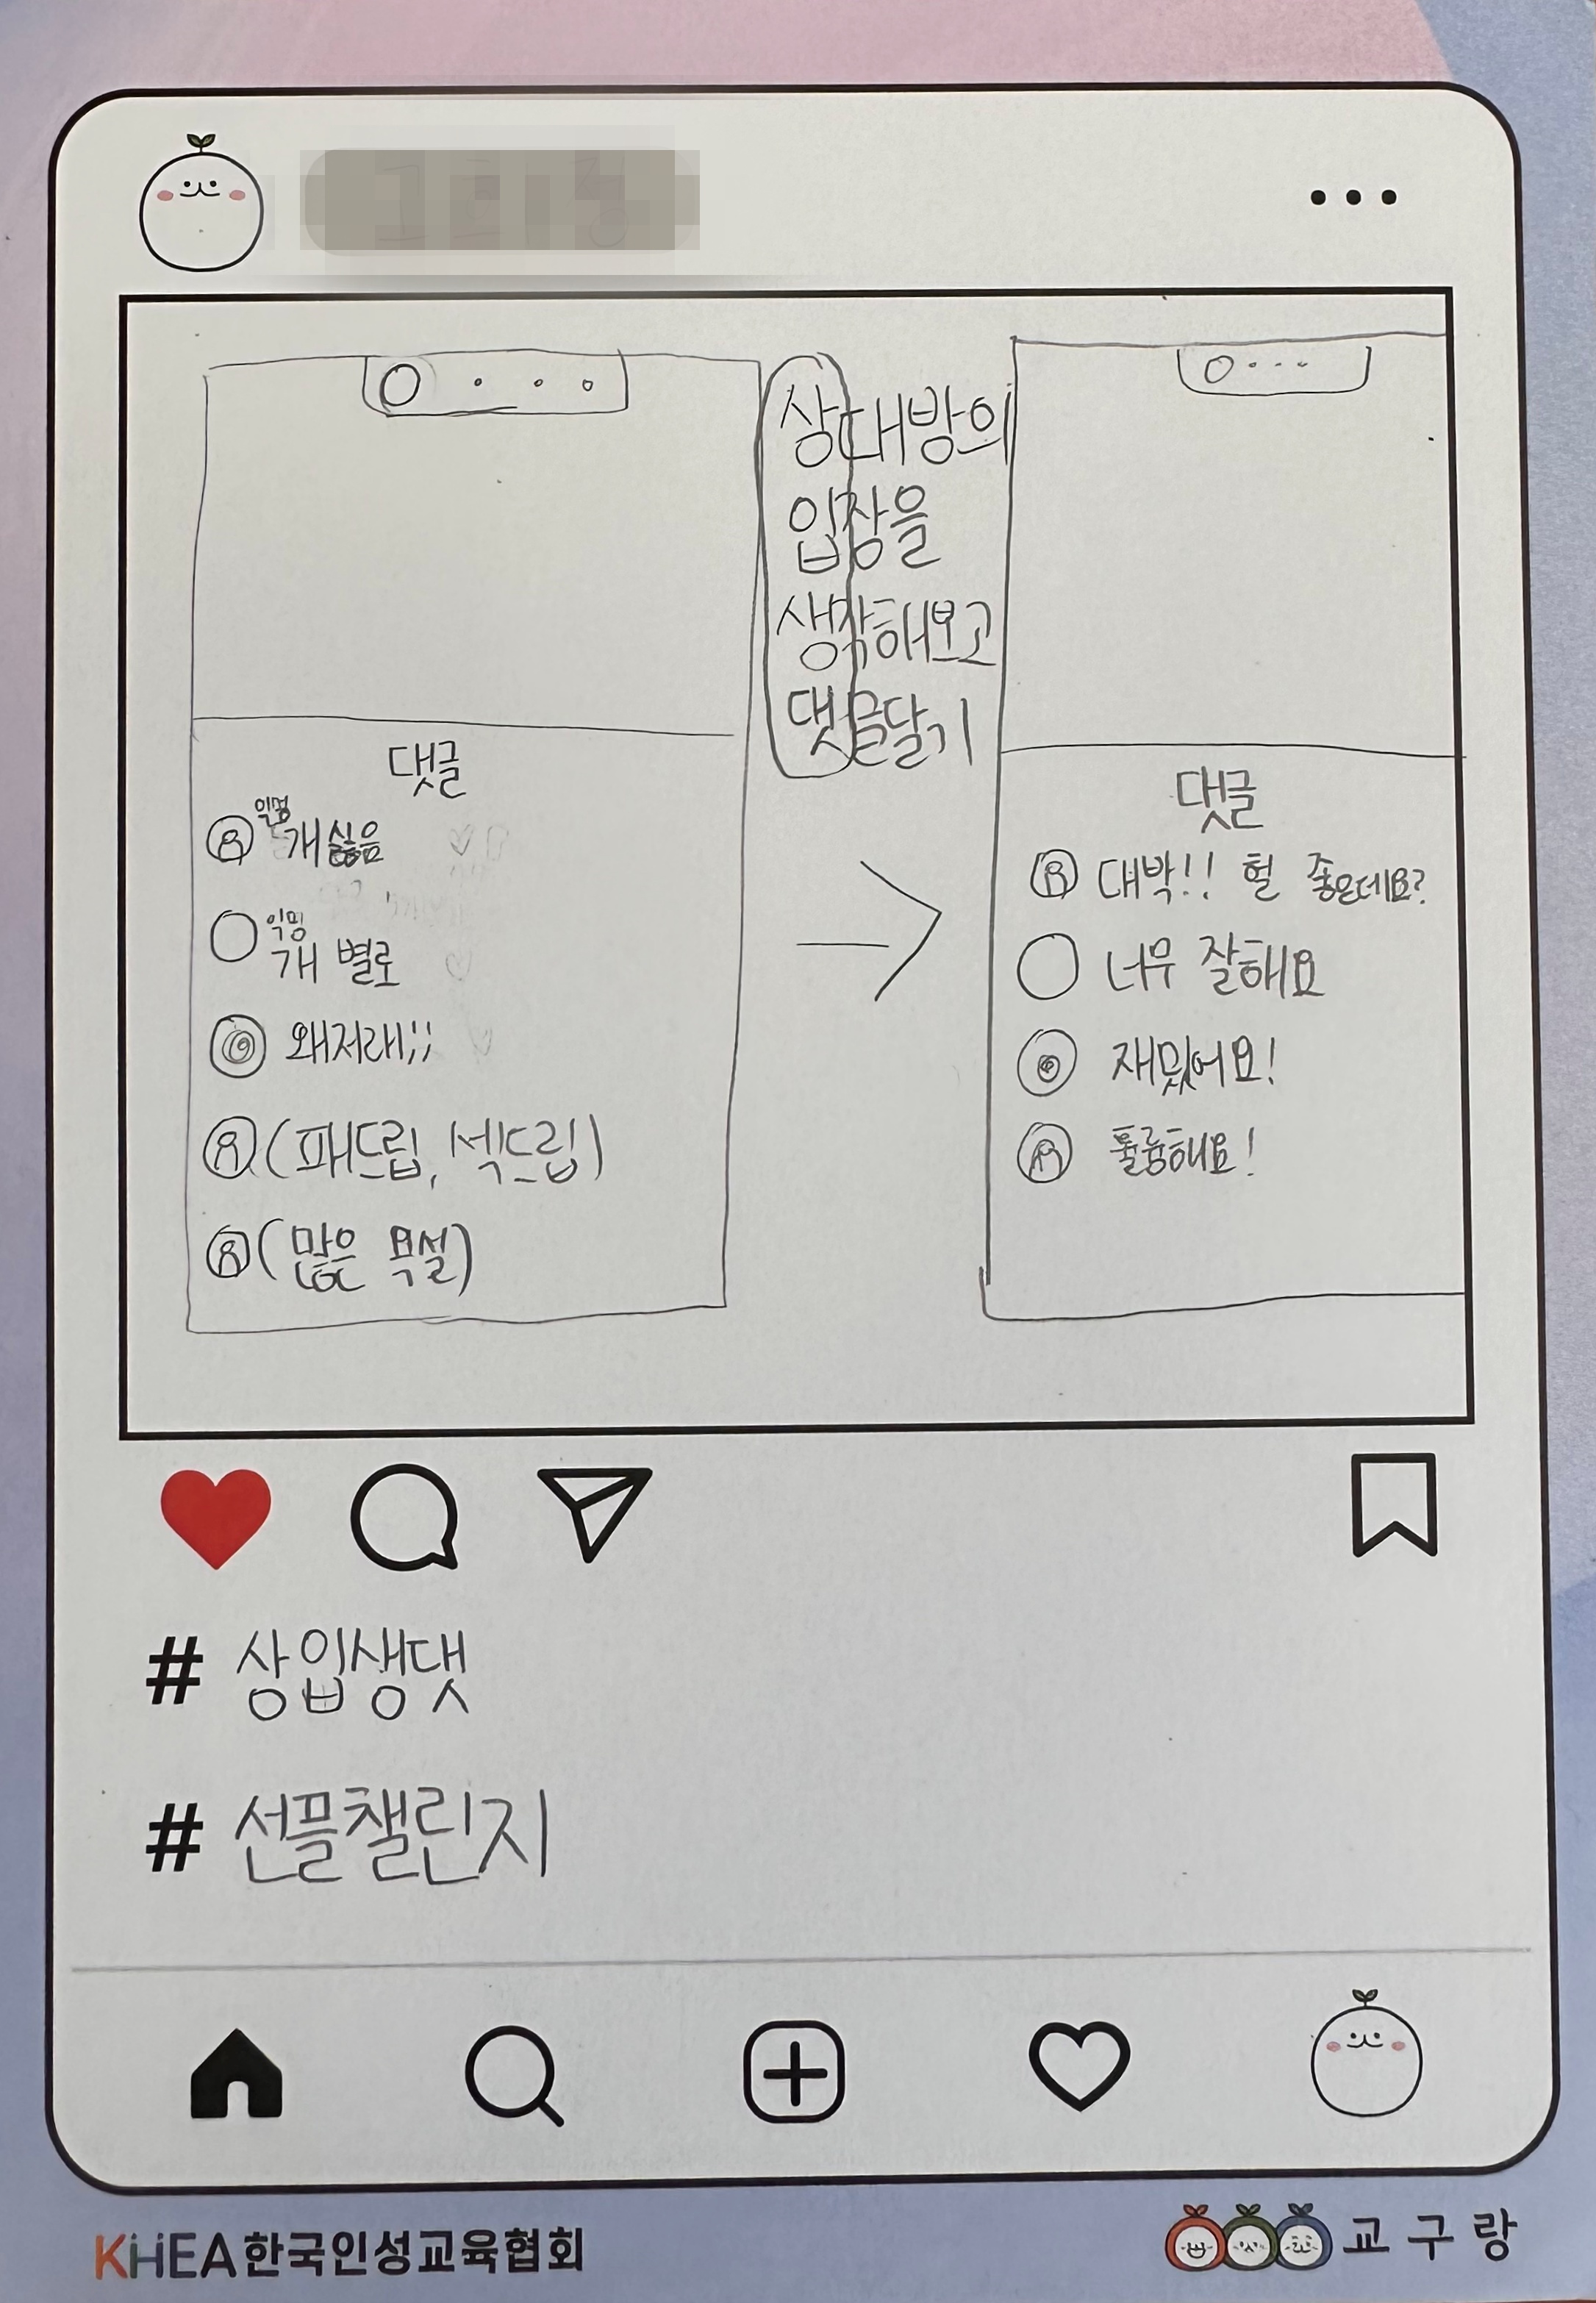 상대방의
입장을
생각해보고
댓글달기
댓글
익명
개싫음
익명
개 별로
왜저래;;
(패드립, 섹드립)
(많은 욕설)
댓글
대박!! 헐 좋은데요?
너무 잘해요
재밌어요!
훌륭해요!
# 상입생댓
# 선플챌린지
KHEA한국인성교육협회
교구랑